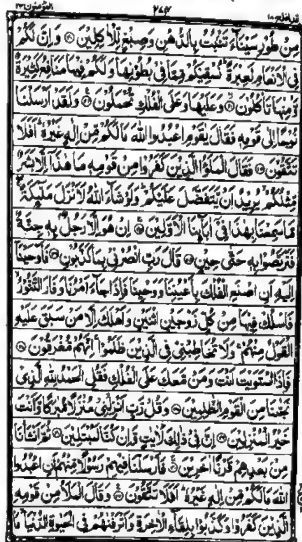 المؤمنون ٢٣ ٢٧٤ قد افلح ١٨
مِنْ طُوْرِ سَيْنَآءَ تَنْۢبُتُ بِالدُّهْنِ وَصِبْغٍ لِّلْاٰكِلِيْنَ ۝٢٠ وَاِنَّ لَكُمْ
فِى الْاَنْعَامِ لَعِبْرَةً ؕ نُسْقِيْكُمْ مِّمَّا فِىْ بُطُوْنِهَا وَلَكُمْ فِيْهَا مَنَافِعُ كَثِيْرَةٌ
وَّمِنْهَا تَاْكُلُوْنَ ۝٢١ وَعَلَيْهَا وَعَلَى الْفُلْكِ تُحْمَلُوْنَ ۝٢٢ وَلَقَدْ اَرْسَلْنَا
نُوْحًا اِلٰى قَوْمِهٖ فَقَالَ يٰقَوْمِ اعْبُدُوا اللّٰهَ مَا لَكُمْ مِّنْ اِلٰهٍ غَيْرُهٗ ؕ اَفَلَا
تَتَّقُوْنَ ۝٢٣ فَقَالَ الْمَلَؤُا الَّذِيْنَ كَفَرُوْا مِنْ قَوْمِهٖ مَا هٰذَآ اِلَّا بَشَرٌ
مِّثْلُكُمْ ۙ يُرِيْدُ اَنْ يَّتَفَضَّلَ عَلَيْكُمْ ؕ وَلَوْ شَآءَ اللّٰهُ لَاَنْزَلَ مَلٰٓئِكَةً ۖ
مَّا سَمِعْنَا بِهٰذَا فِىْۤ اٰبَآئِنَا الْاَوَّلِيْنَ ۝٢٤ اِنْ هُوَ اِلَّا رَجُلٌۢ بِهٖ جِنَّةٌ
فَتَرَبَّصُوْا بِهٖ حَتّٰى حِيْنٍ ۝٢٥ قَالَ رَبِّ انْصُرْنِىْ بِمَا كَذَّبُوْنِ ۝٢٦ فَاَوْحَيْنَآ
اِلَيْهِ اَنِ اصْنَعِ الْفُلْكَ بِاَعْيُنِنَا وَوَحْيِنَا فَاِذَا جَآءَ اَمْرُنَا وَفَارَ التَّنُّوْرُ ۙ
فَاسْلُكْ فِيْهَا مِنْ كُلٍّ زَوْجَيْنِ اثْنَيْنِ وَاَهْلَكَ اِلَّا مَنْ سَبَقَ عَلَيْهِ
الْقَوْلُ مِنْهُمْ ۚ وَلَا تُخَاطِبْنِىْ فِى الَّذِيْنَ ظَلَمُوْا ۚ اِنَّهُمْ مُّغْرَقُوْنَ ۝٢٧
فَاِذَا اسْتَوَيْتَ اَنْتَ وَمَنْ مَّعَكَ عَلَى الْفُلْكِ فَقُلِ الْحَمْدُ لِلّٰهِ الَّذِىْ
نَجّٰىنَا مِنَ الْقَوْمِ الظّٰلِمِيْنَ ۝٢٨ وَقُلْ رَّبِّ اَنْزِلْنِىْ مُنْزَلًا مُّبٰرَكًا وَّاَنْتَ
خَيْرُ الْمُنْزِلِيْنَ ۝٢٩ اِنَّ فِىْ ذٰلِكَ لَاٰيٰتٍ وَّاِنْ كُنَّا لَمُبْتَلِيْنَ ۝٣٠ ثُمَّ اَنْشَاْنَا
مِنْۢ بَعْدِهِمْ قَرْنًا اٰخَرِيْنَ ۝٣١ فَاَرْسَلْنَا فِيْهِمْ رَسُوْلًا مِّنْهُمْ اَنِ اعْبُدُوا
اللّٰهَ مَا لَكُمْ مِّنْ اِلٰهٍ غَيْرُهٗ ؕ اَفَلَا تَتَّقُوْنَ ۝٣٢ وَقَالَ الْمَلَاُ مِنْ قَوْمِهِ
الَّذِيْنَ كَفَرُوْا وَكَذَّبُوْا بِلِقَآءِ الْاٰخِرَةِ وَاَتْرَفْنٰهُمْ فِى الْحَيٰوةِ الدُّنْيَا ۙ مَا